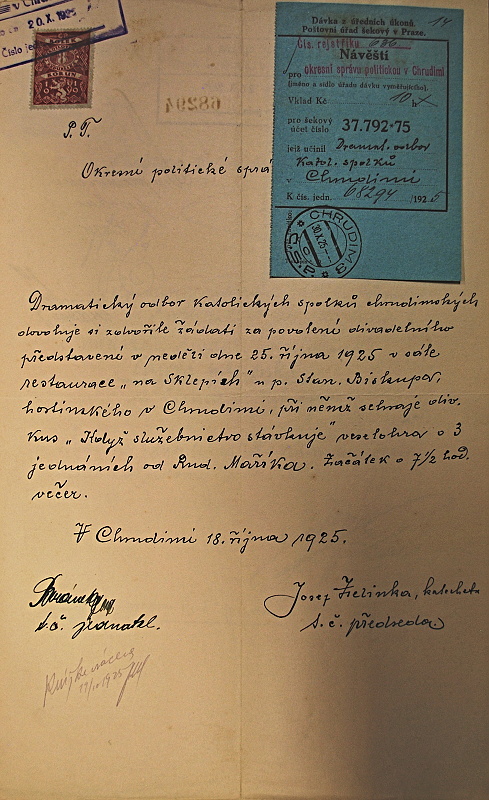 v Chrud
20. X. 1925
Číslo jed
KOLEK
KORUN
5
68294
P. T.
Okresní politické sprá
Dávka z úředních úkonů. 14
Poštovní úřad šekový v Praze.
Čís. rejstříku 686
Návěští
pro okresní správu politickou v Chrudimi
(jméno a sídlo úřadu dávku vyměřujícího).
Vklad Kč 10 h
pro šekový
účet číslo 37.792·75
jejž učinil Dramat. odbor
Katol. spolků
v Chrudimi
K čís. jedn. 68294 /1925
CHRUDIM 3
30.X.25
Dramatický odbor Katolických spolků chrudimských
dovoluje si zdvořile žádati za povolení divadelního
představení v neděli dne 25. října 1925 v sále
restaurace „na Sklepích" u p. Stan. Biskupa,
hostinského v Chrudimi, při němž sehraje div.
kus „Když služebnictvo stávkuje" veselohra o 3
jednáních od Rud. Maříka. Začátek o 7½ hod.
večer.
V Chrudimi 18. října 1925.
t. č. jednatel.
Josef Zielinka, katecheta
t. č. předseda